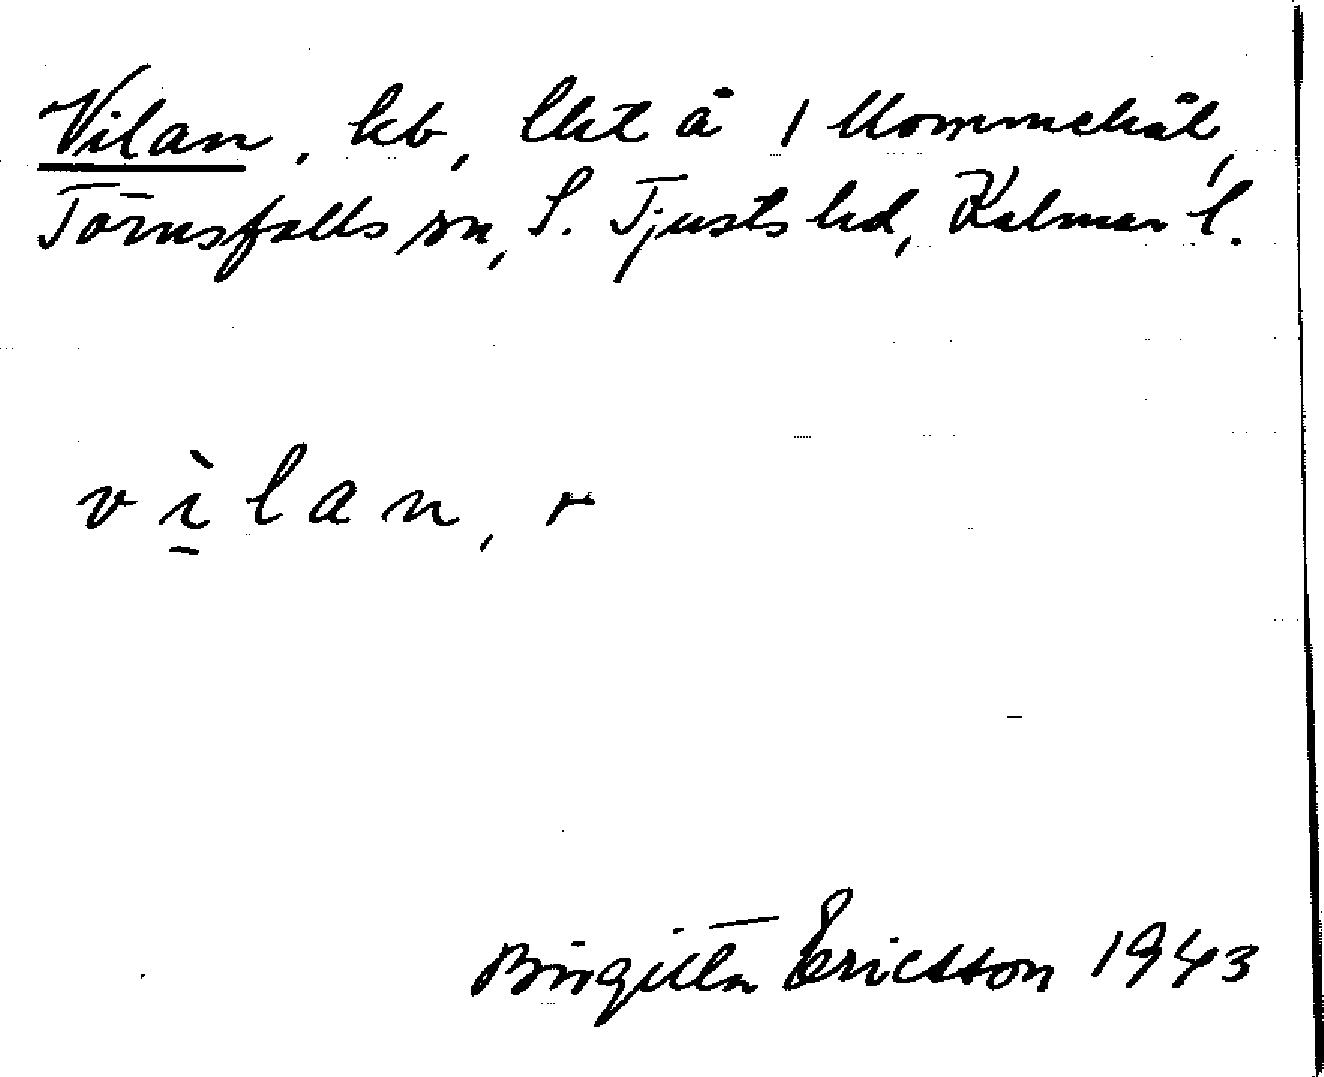 Vilan, hb, lht å 1 Mommehål,
Törnsfalls sn, S. Tjusts hd, Kalmar l.
vı̱̀lan, r
Birgitta Ericsson 1943